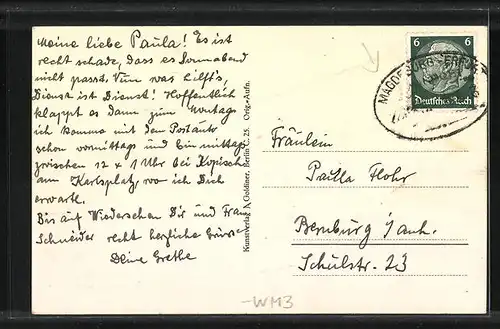 Meine liebe Paula! Es ist
recht schade, dass es Sonnabend
nicht passt. Nun was hilft's,
Dienst ist Dienst! Hoffentlich
klappt es dann zum Montag.
ich komme mit dem Postauto
schon vormittags und bin mittags
zwischen 12 & 1 Uhr bei Kopisch
am Karlsplatz, wo ich Dich
erwarte.
Bis auf Wiedersehen Dir und Frau
Schneider recht herzliche Grüsse
Deine Grethe
Kunstverlag A. Goldiner, Berlin C. 25. Orig.-Aufn.
6 6
Deutsches Reich
Fräulein
Paula Flohr
Bernburg / Anh.
Schulstr. 23
-WM3